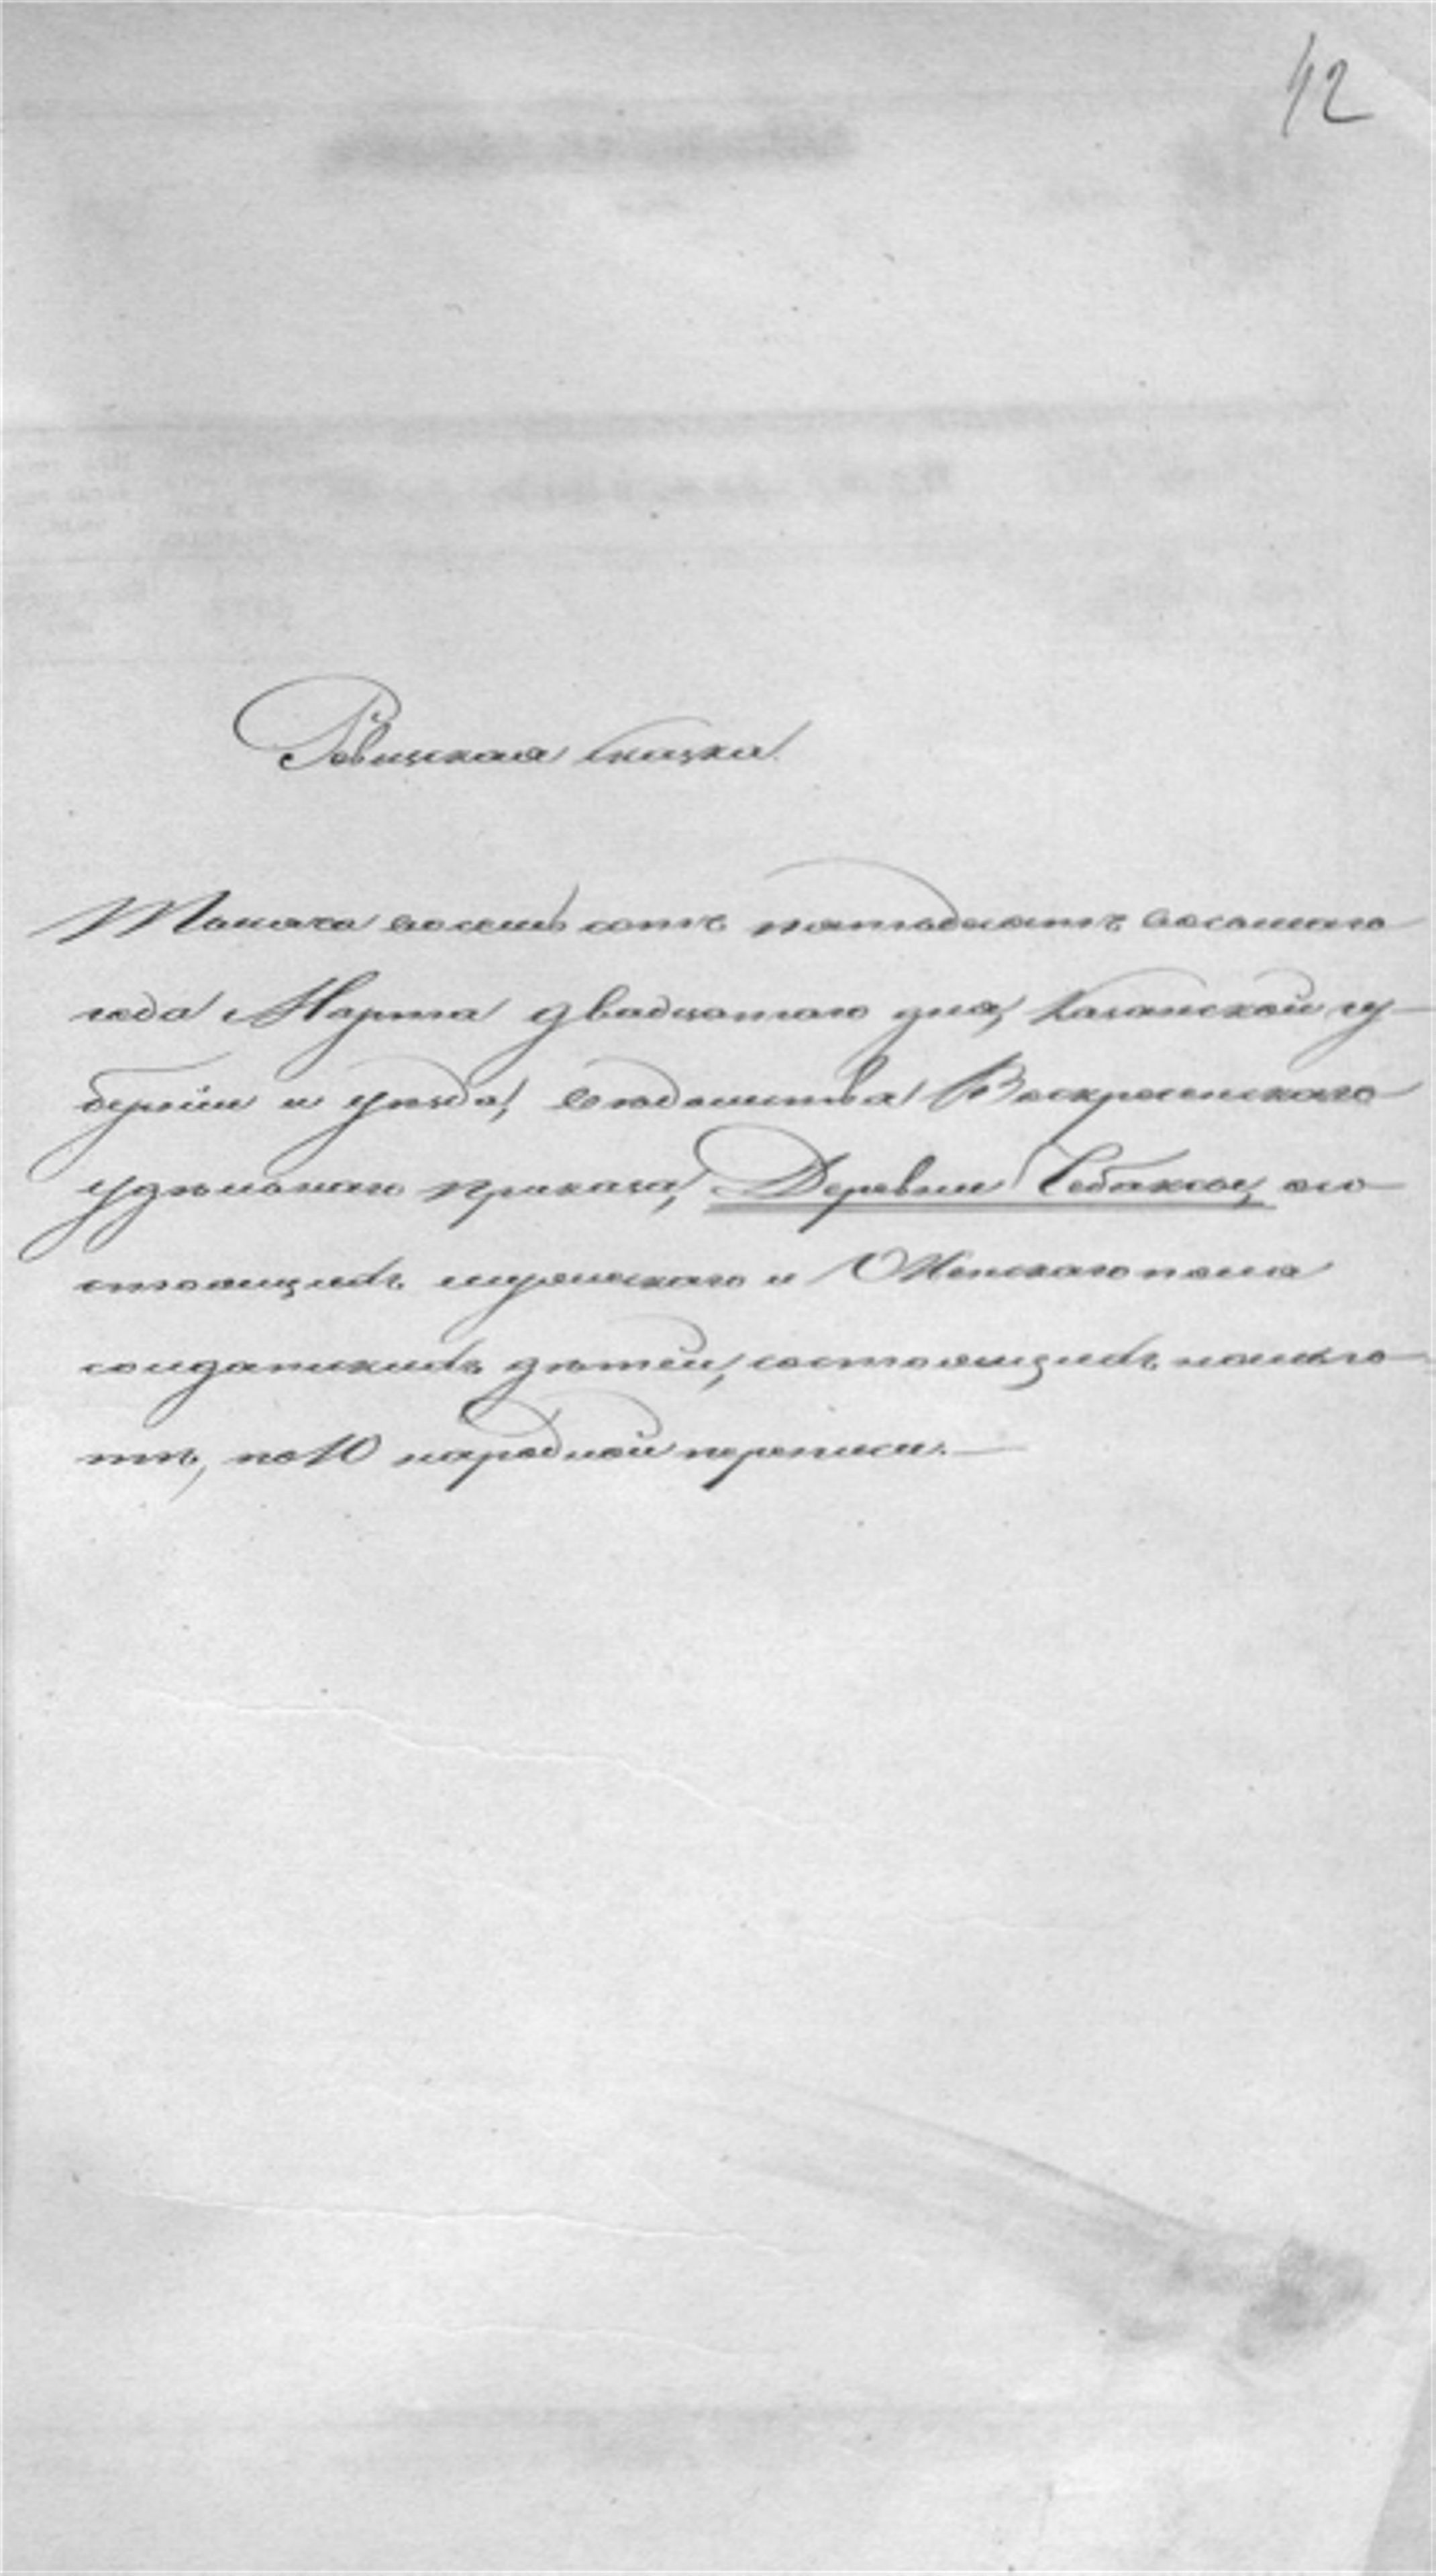 42
Ревизская сказка
Тысяча восемь сотъ пятьдесятъ восьмаго
года Марта двадцатаго дня, Казанской гу-
берніи и уѣзда, вѣдомства Воскресенскаго
удѣльнаго приказа, Деревни
стоящихъ мужескаго и Женскаго пола
солдатскихъ дѣтей, состоящихъ налиго-
тѣ, по 10 народной переписи.